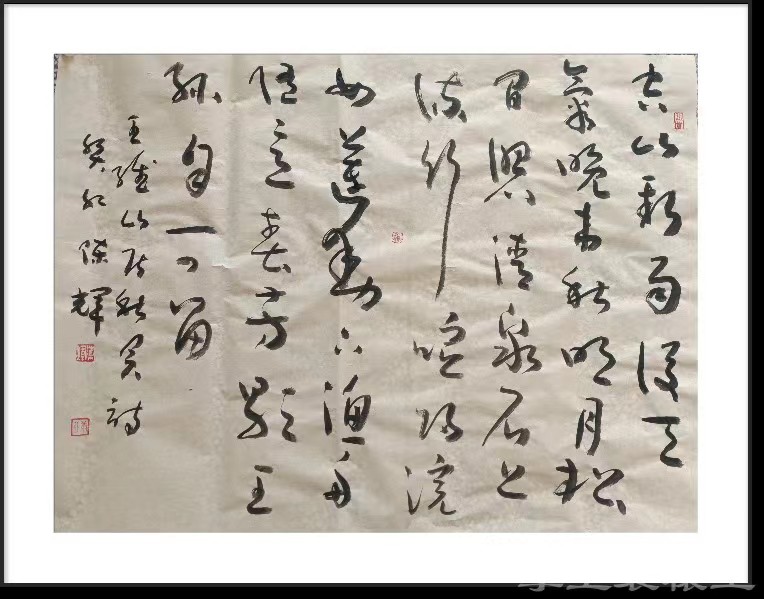 空山新雨後天
氣晚來秋明月松
間照清泉石上
流竹喧歸浣
女蓮動下漁舟
随意春芳歇王
孫自可留
王維山居秋暝詩
癸卯陳輝